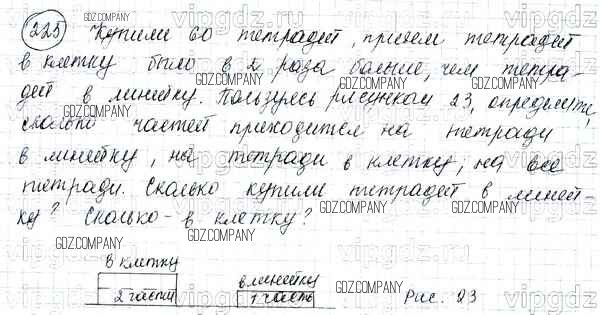 225 Купили 60 тетрадей, причем тетрадей
в клетку было в 2 раза больше, чем тетра-
дей в линейку. Пользуясь рисунком 23, определите,
сколько частей приходится на тетради
в линейку, на тетради в клетку, на все
тетради. Сколько купили тетрадей в линей-
ку? Сколько - в клетку?
в клетку
в линейку
2 части
1 часть
Рис. 23
GDZ.COMPANY
vipgdz.ru